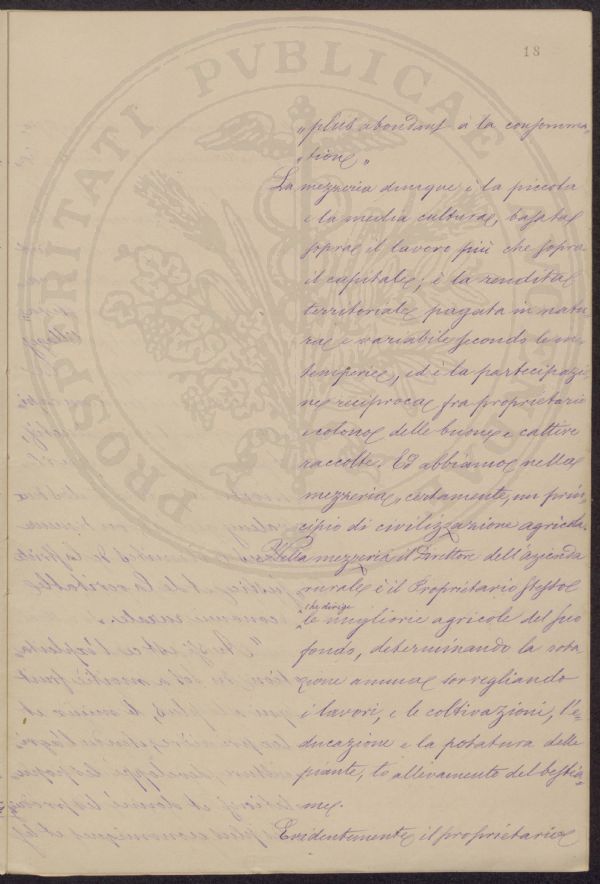 18
„ plus abondant à la consomma-
„ tion „
La mezzeria dunque è la piccola
e la media cultura, basata
sopra il lavoro più che sopra
il capitale; è la rendita
territoriale pagata in natu-
ra e variabile secondo le in-
temperie, ed è la partecipazio-
ne reciproca fra proprietario
e colono delle buone e cattive
raccolte. Ed abbiamo nella
mezzeria, certamente, un prin-
cipio di civilizzazione agricola.
Nella mezzeria il Direttore dell'azienda
rurale è il Proprietario stesso
che dirige
le migliorie agricole del suo
fondo, determinando la rota
zione annua sorvegliando
i lavori, e le coltivazioni, l'e-
ducazione e la potatura delle
piante, lo allevamento del bestia-
me.
Evidentemente il proprietario
PROSPERITATI PVBLICAE